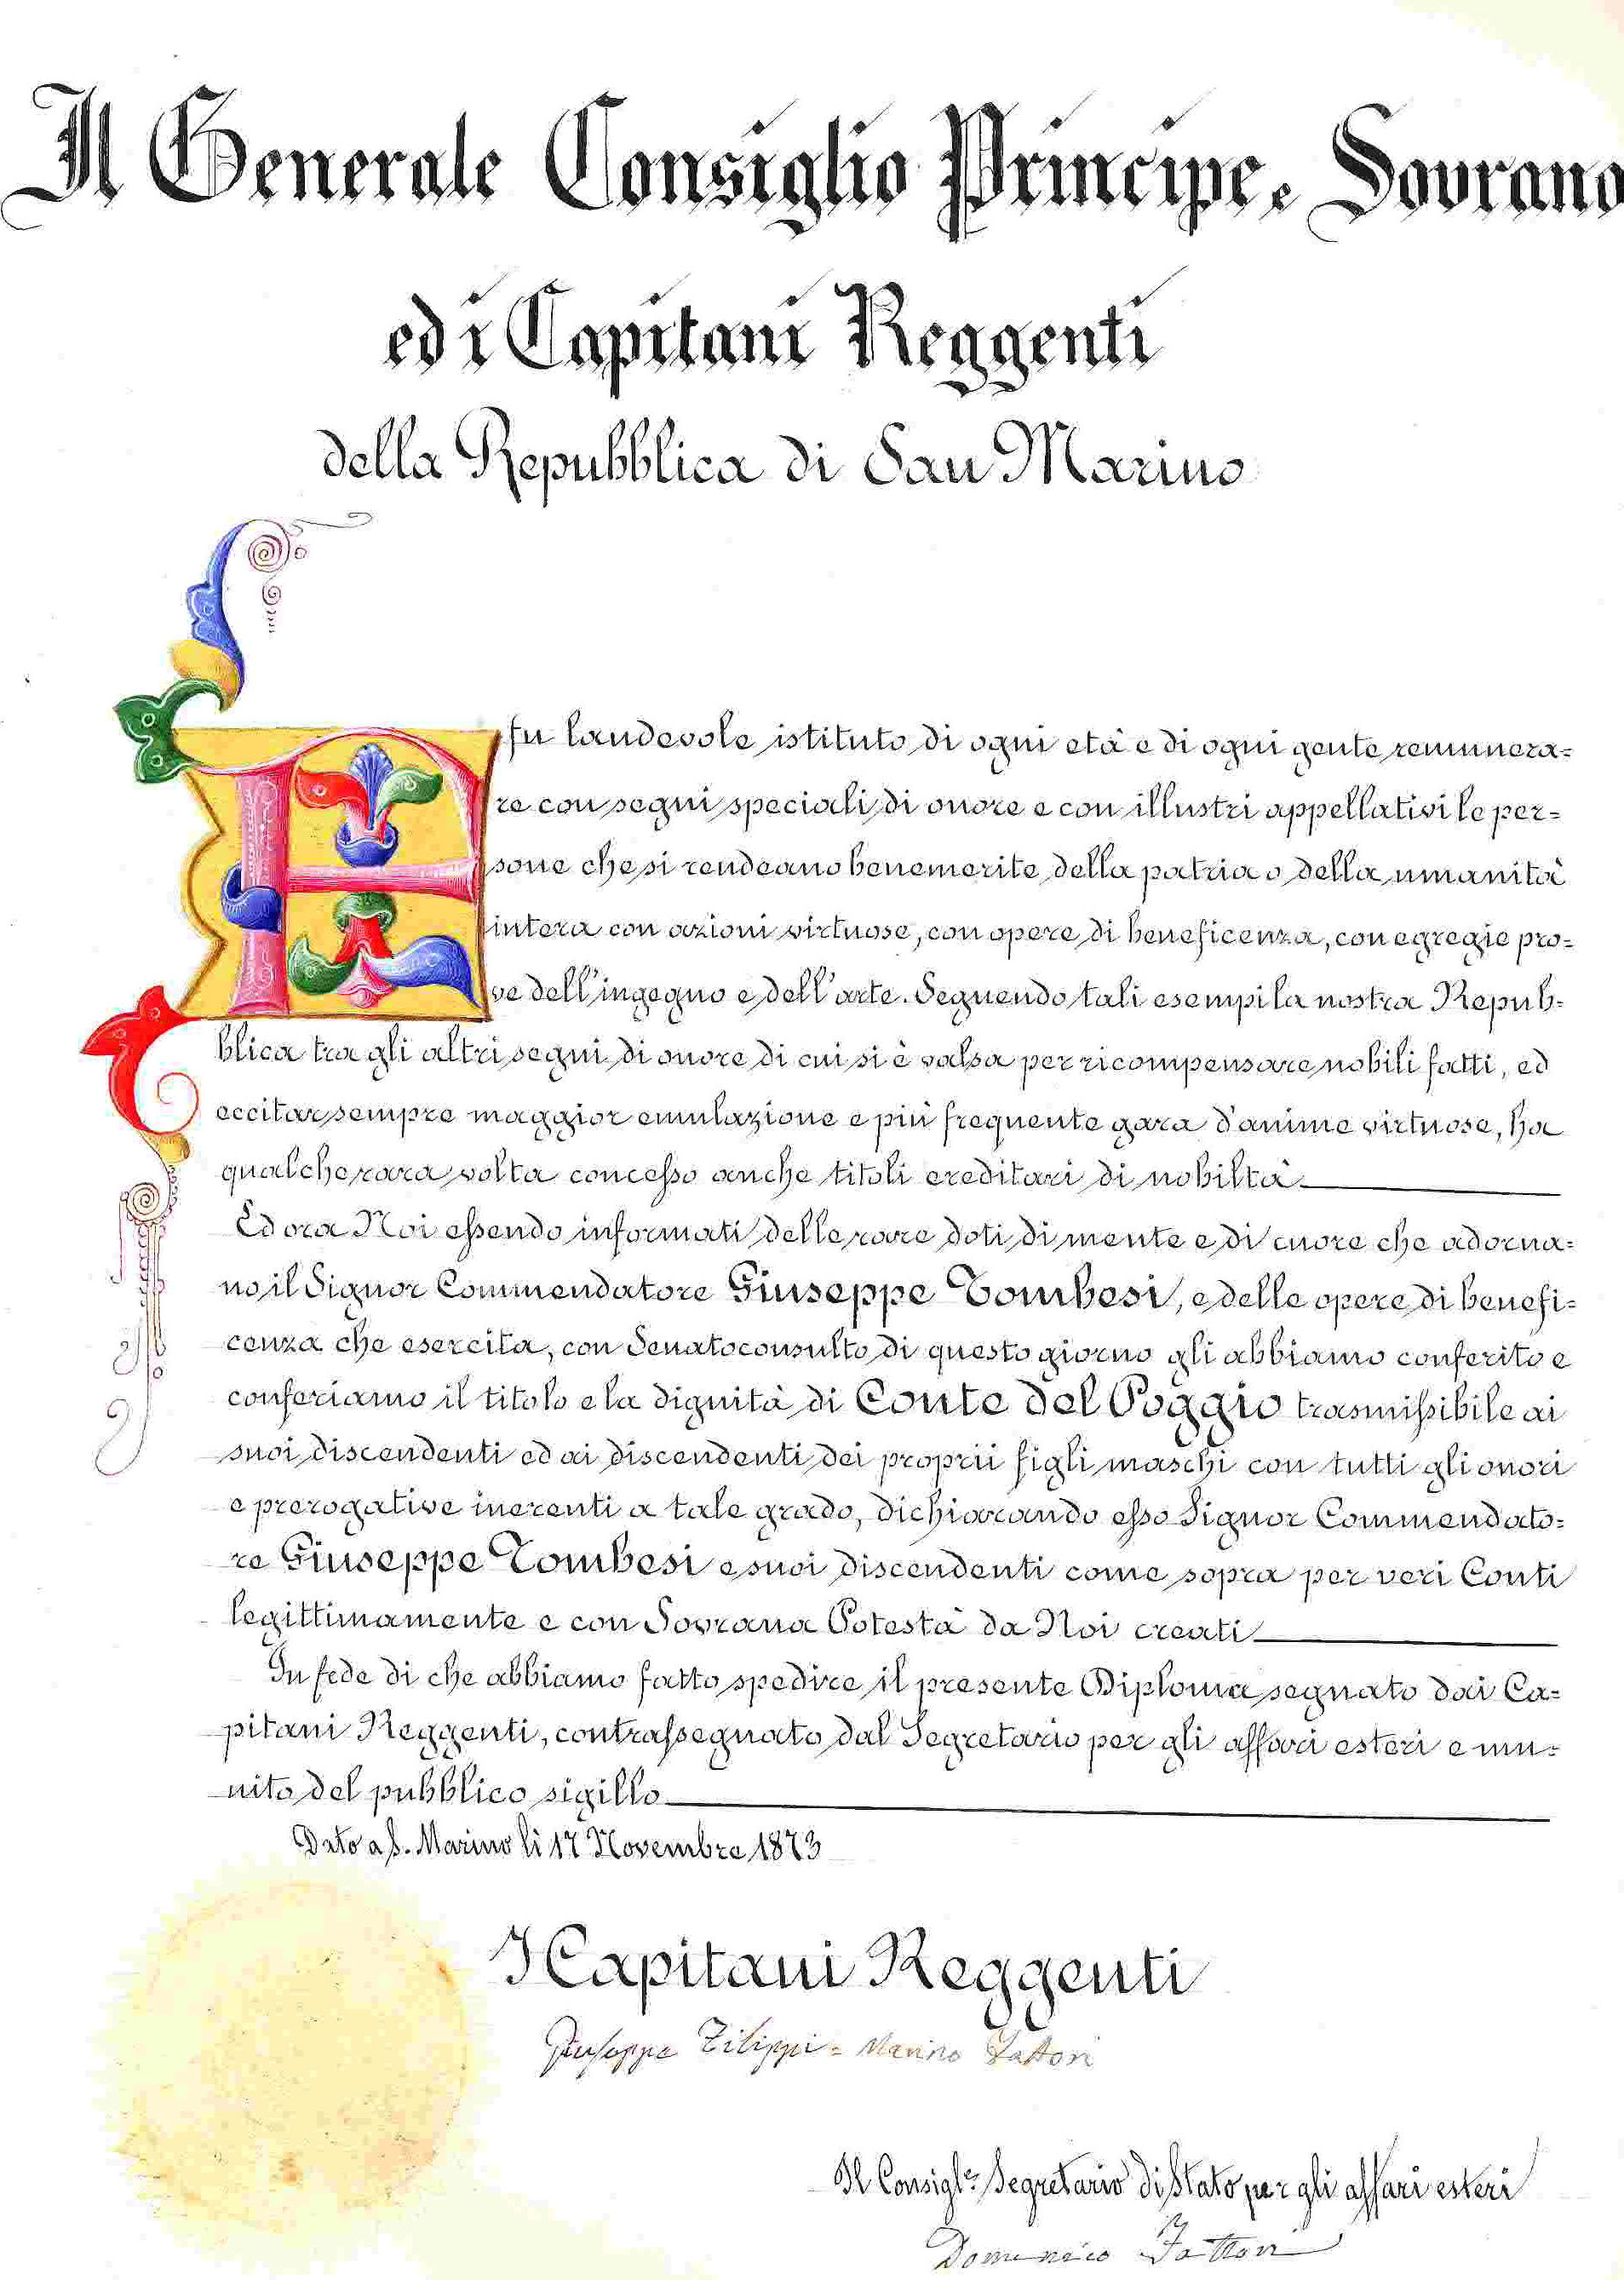 Il Generale Consiglio Principe, e Sovrano
ed i Capitani Reggenti
della Repubblica di San Marino
E fu laudevole istituto di ogni età e di ogni gente remunera=
re con segni speciali di onore e con illustri appellativi le per=
sone che si rendeano benemerite della patria o della umanità
intera con azioni virtuose, con opere di beneficenza, con egregie pro=
ve dell'ingegno e dell'arte. Seguendo tali esempi la nostra Repub=
blica tra gli altri segni di onore di cui si è valsa per ricompensare nobili fatti, ed
eccitar sempre maggior emulazione e più frequente gara d'anime virtuose, ha
qualche rara volta concesso anche titoli ereditari di nobiltà
Ed ora Noi essendo informati delle rare doti di mente e di cuore che adorna=
no il Signor Commendatore Giuseppe Tombesi, e delle opere di benefi=
cenza che esercita, con Senatoconsulto di questo giorno gli abbiamo conferito e
conferiamo il titolo e la dignità di Conte del Poggio trasmissibile ai
suoi discendenti ed ai discendenti dei proprii figli maschi con tutti gli onori
e prerogative inerenti a tale grado, dichiarando esso Signor Commendato=
re Giuseppe Tombesi e suoi discendenti come sopra per veri Conti
legittimamente e con Sovrana Potestà da Noi creati
In fede di che abbiamo fatto spedire il presente Diploma segnato dai Ca=
pitani Reggenti, contrassegnato dal Segretario per gli affari esteri e mu=
nito del pubblico sigillo
Dato a S. Marino li 17 Novembre 1873
I Capitani Reggenti
Giuseppe Filippi = Marino Fattori
Il Consigl.e Segretario di Stato per gli affari esteri
Domenico Fattori